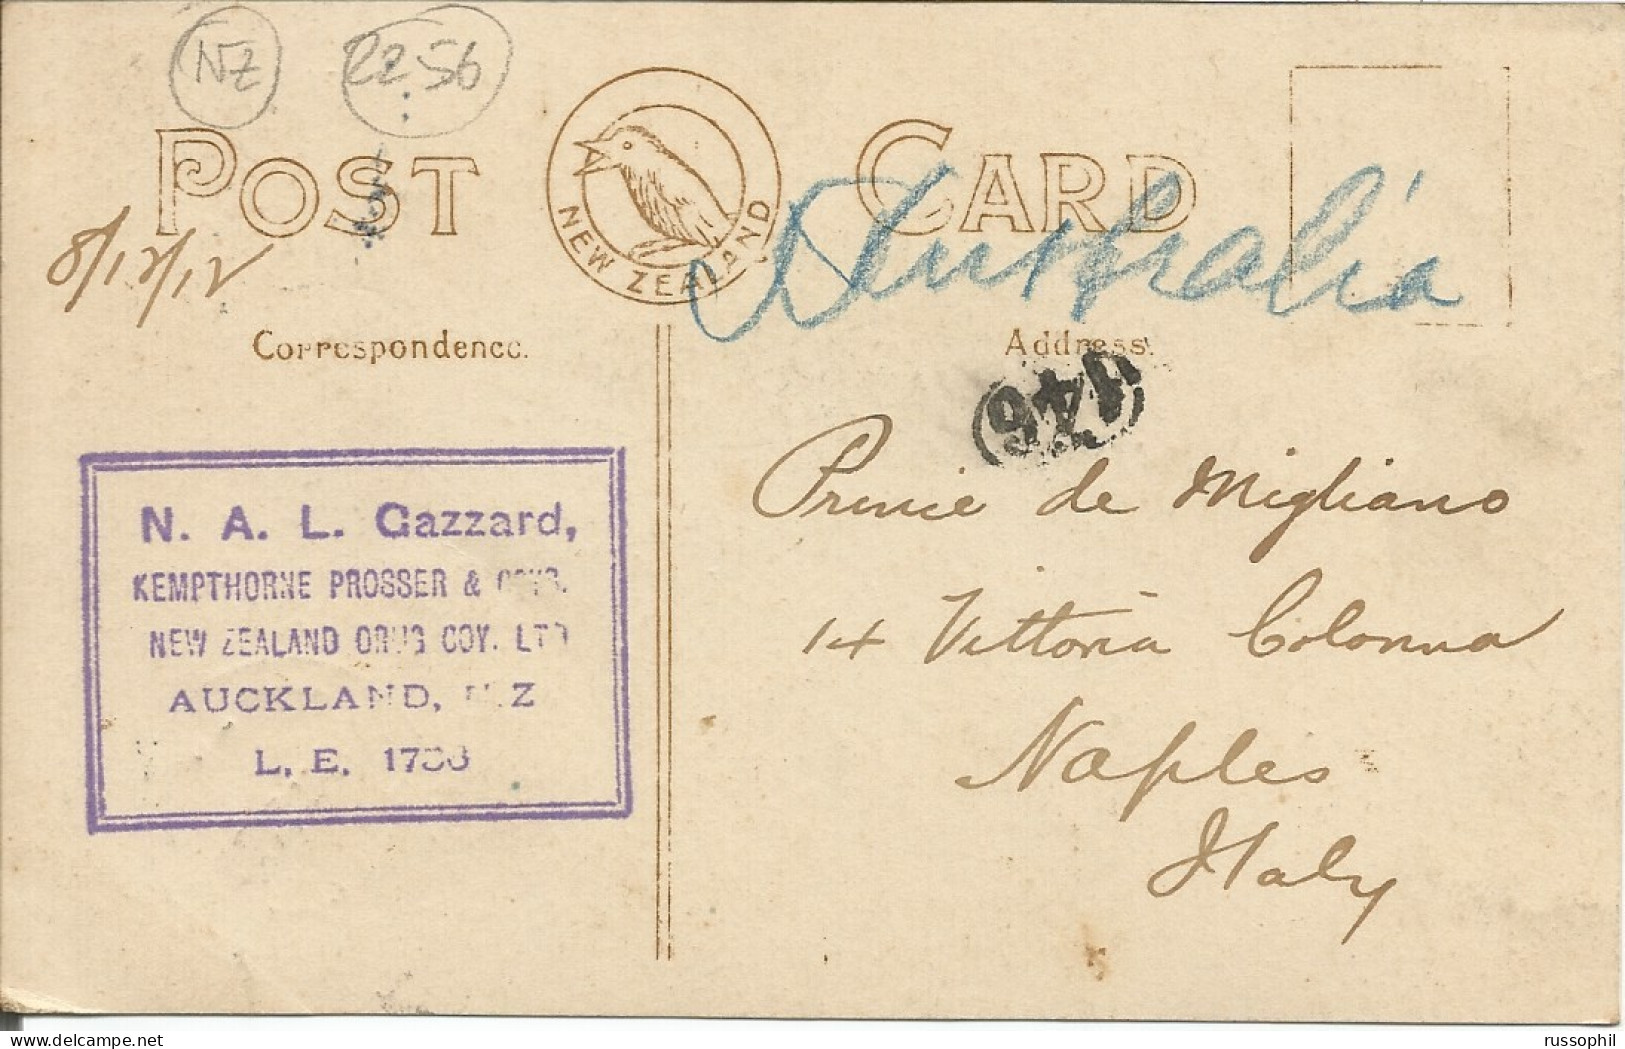 NZ 22.56
POST CARD
NEW ZEALAND
Australia
8/12/12
Correspondence.
Address.
146
N. A. L. Gazzard,
KEMPTHORNE PROSSER &
NEW ZEALAND DRUG COY. LTD
AUCKLAND, N.Z
L. E.
Prince de Migliano
14 Vittoria Colonna
Naples
Italy
russophil
delcampe.net